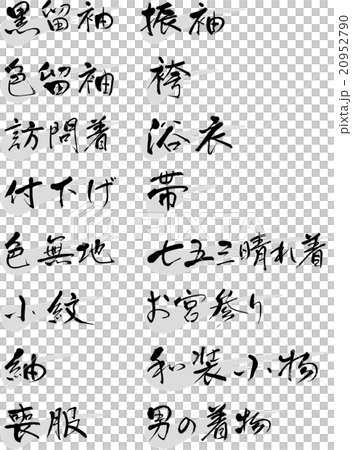 黒留袖 振袖
色留袖 袴
訪問着 浴衣
付下げ 帯
色無地 七五三晴れ着
小紋 お宮参り
紬 和装小物
喪服 男の着物
pixta.jp - 20952790